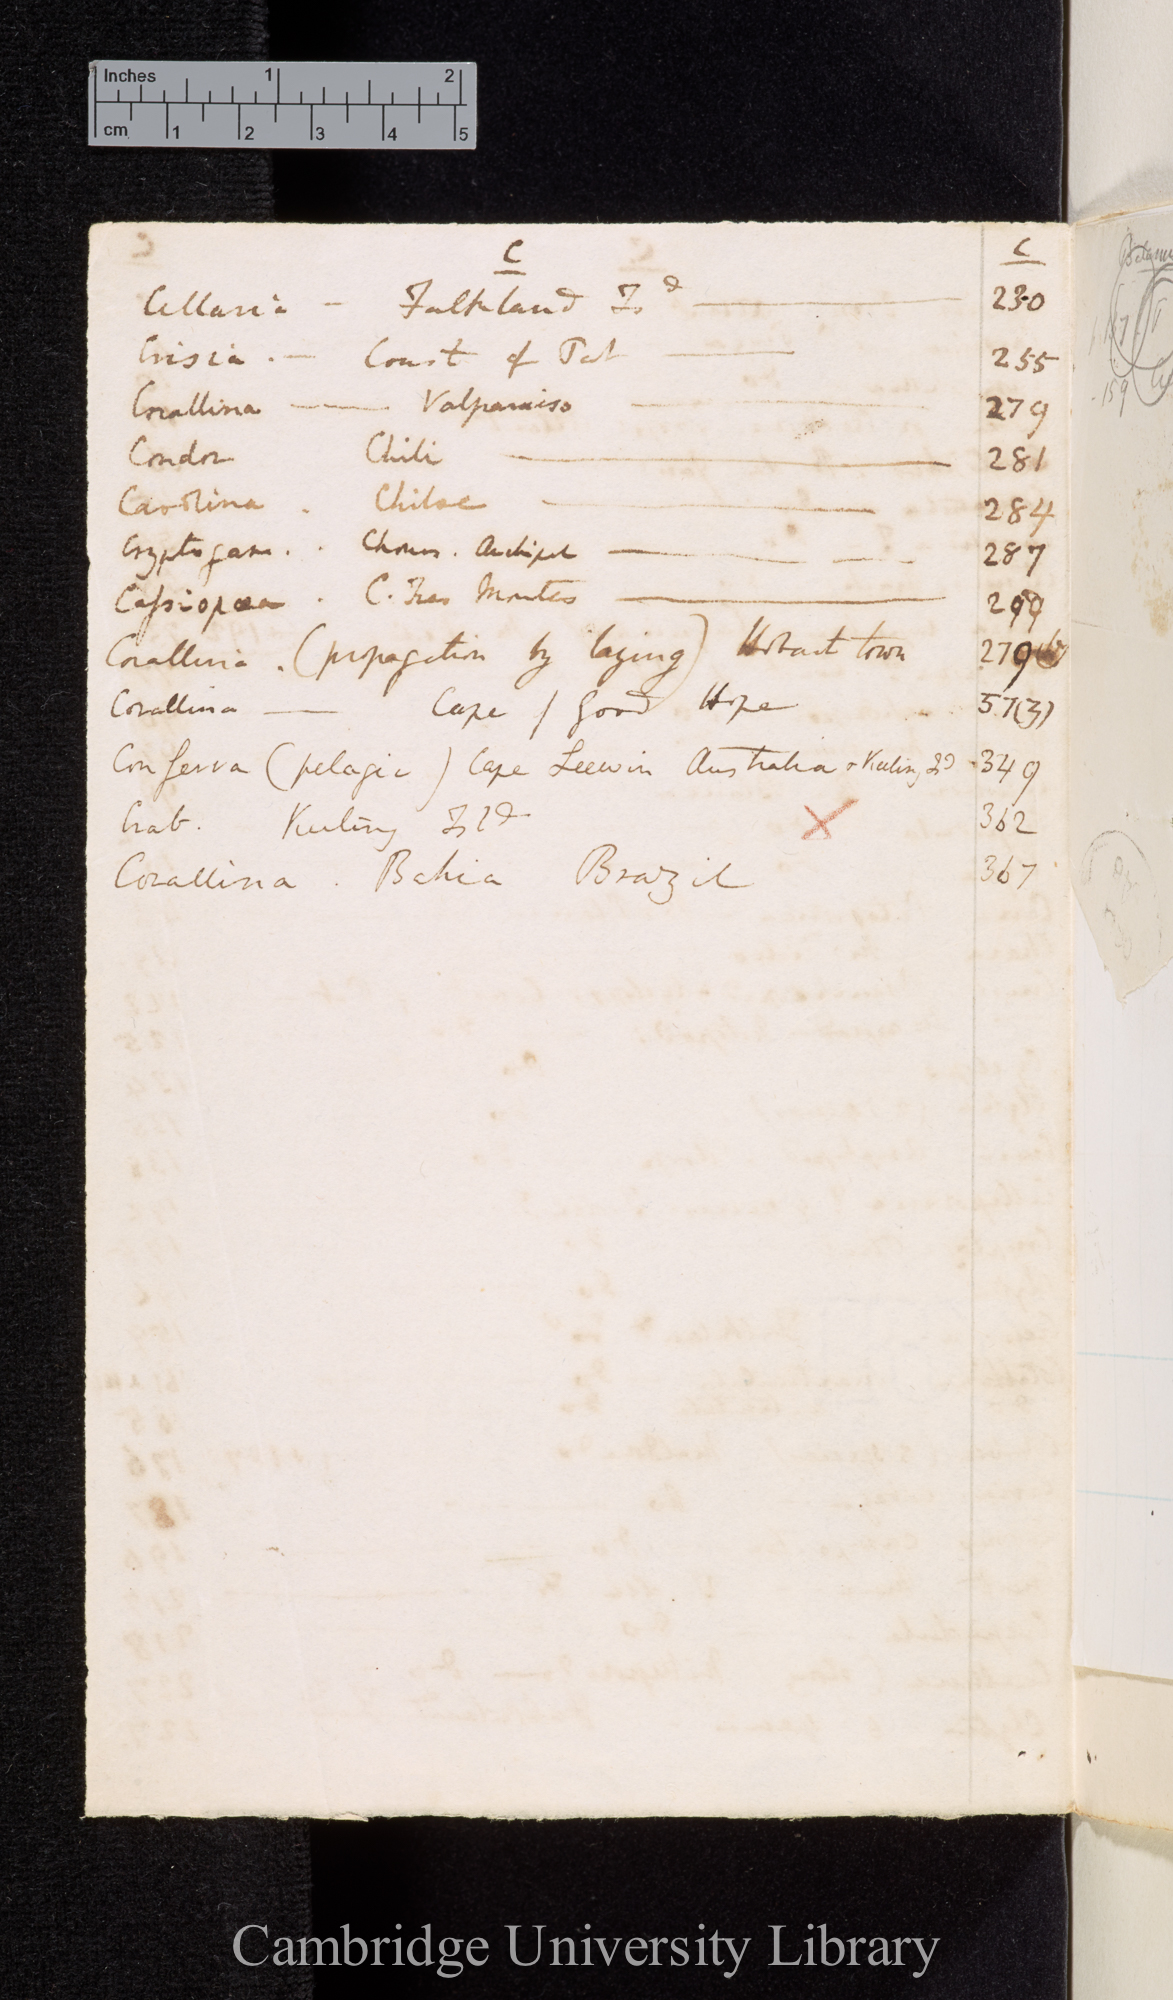 Inches 1 2
cm 1 2 3 4 5
C C
Cellaria — Falkland Isd — 230
Crisia . — Coast of Pat — 255
Corallina — Valparaiso — 279
Condor Chili — 281
Carolina . Chiloe — 284
Cryptogam . . Chonos . Archipel — 287
Cassiopœa . C. Tres Montes — 299
Corallina . (propagation by laying) Hobart town 279(b)
Corallina — Cape of Good Hope 57(3)
Conferva (pelagic) Cape Leewin Australia & Keeling Isd 349
Crab . Keeling Isld X 362
Corallina . Bahia Brazil 367
159
Cambridge University Library